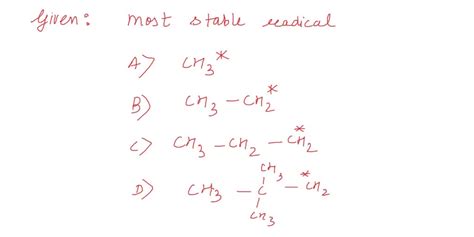 Given: most stable radical
A) CH3*
B) CH3 - CH2*
C) CH3 - CH2 - CH2*
CH3
D) CH3 - C - CH2*
CH3